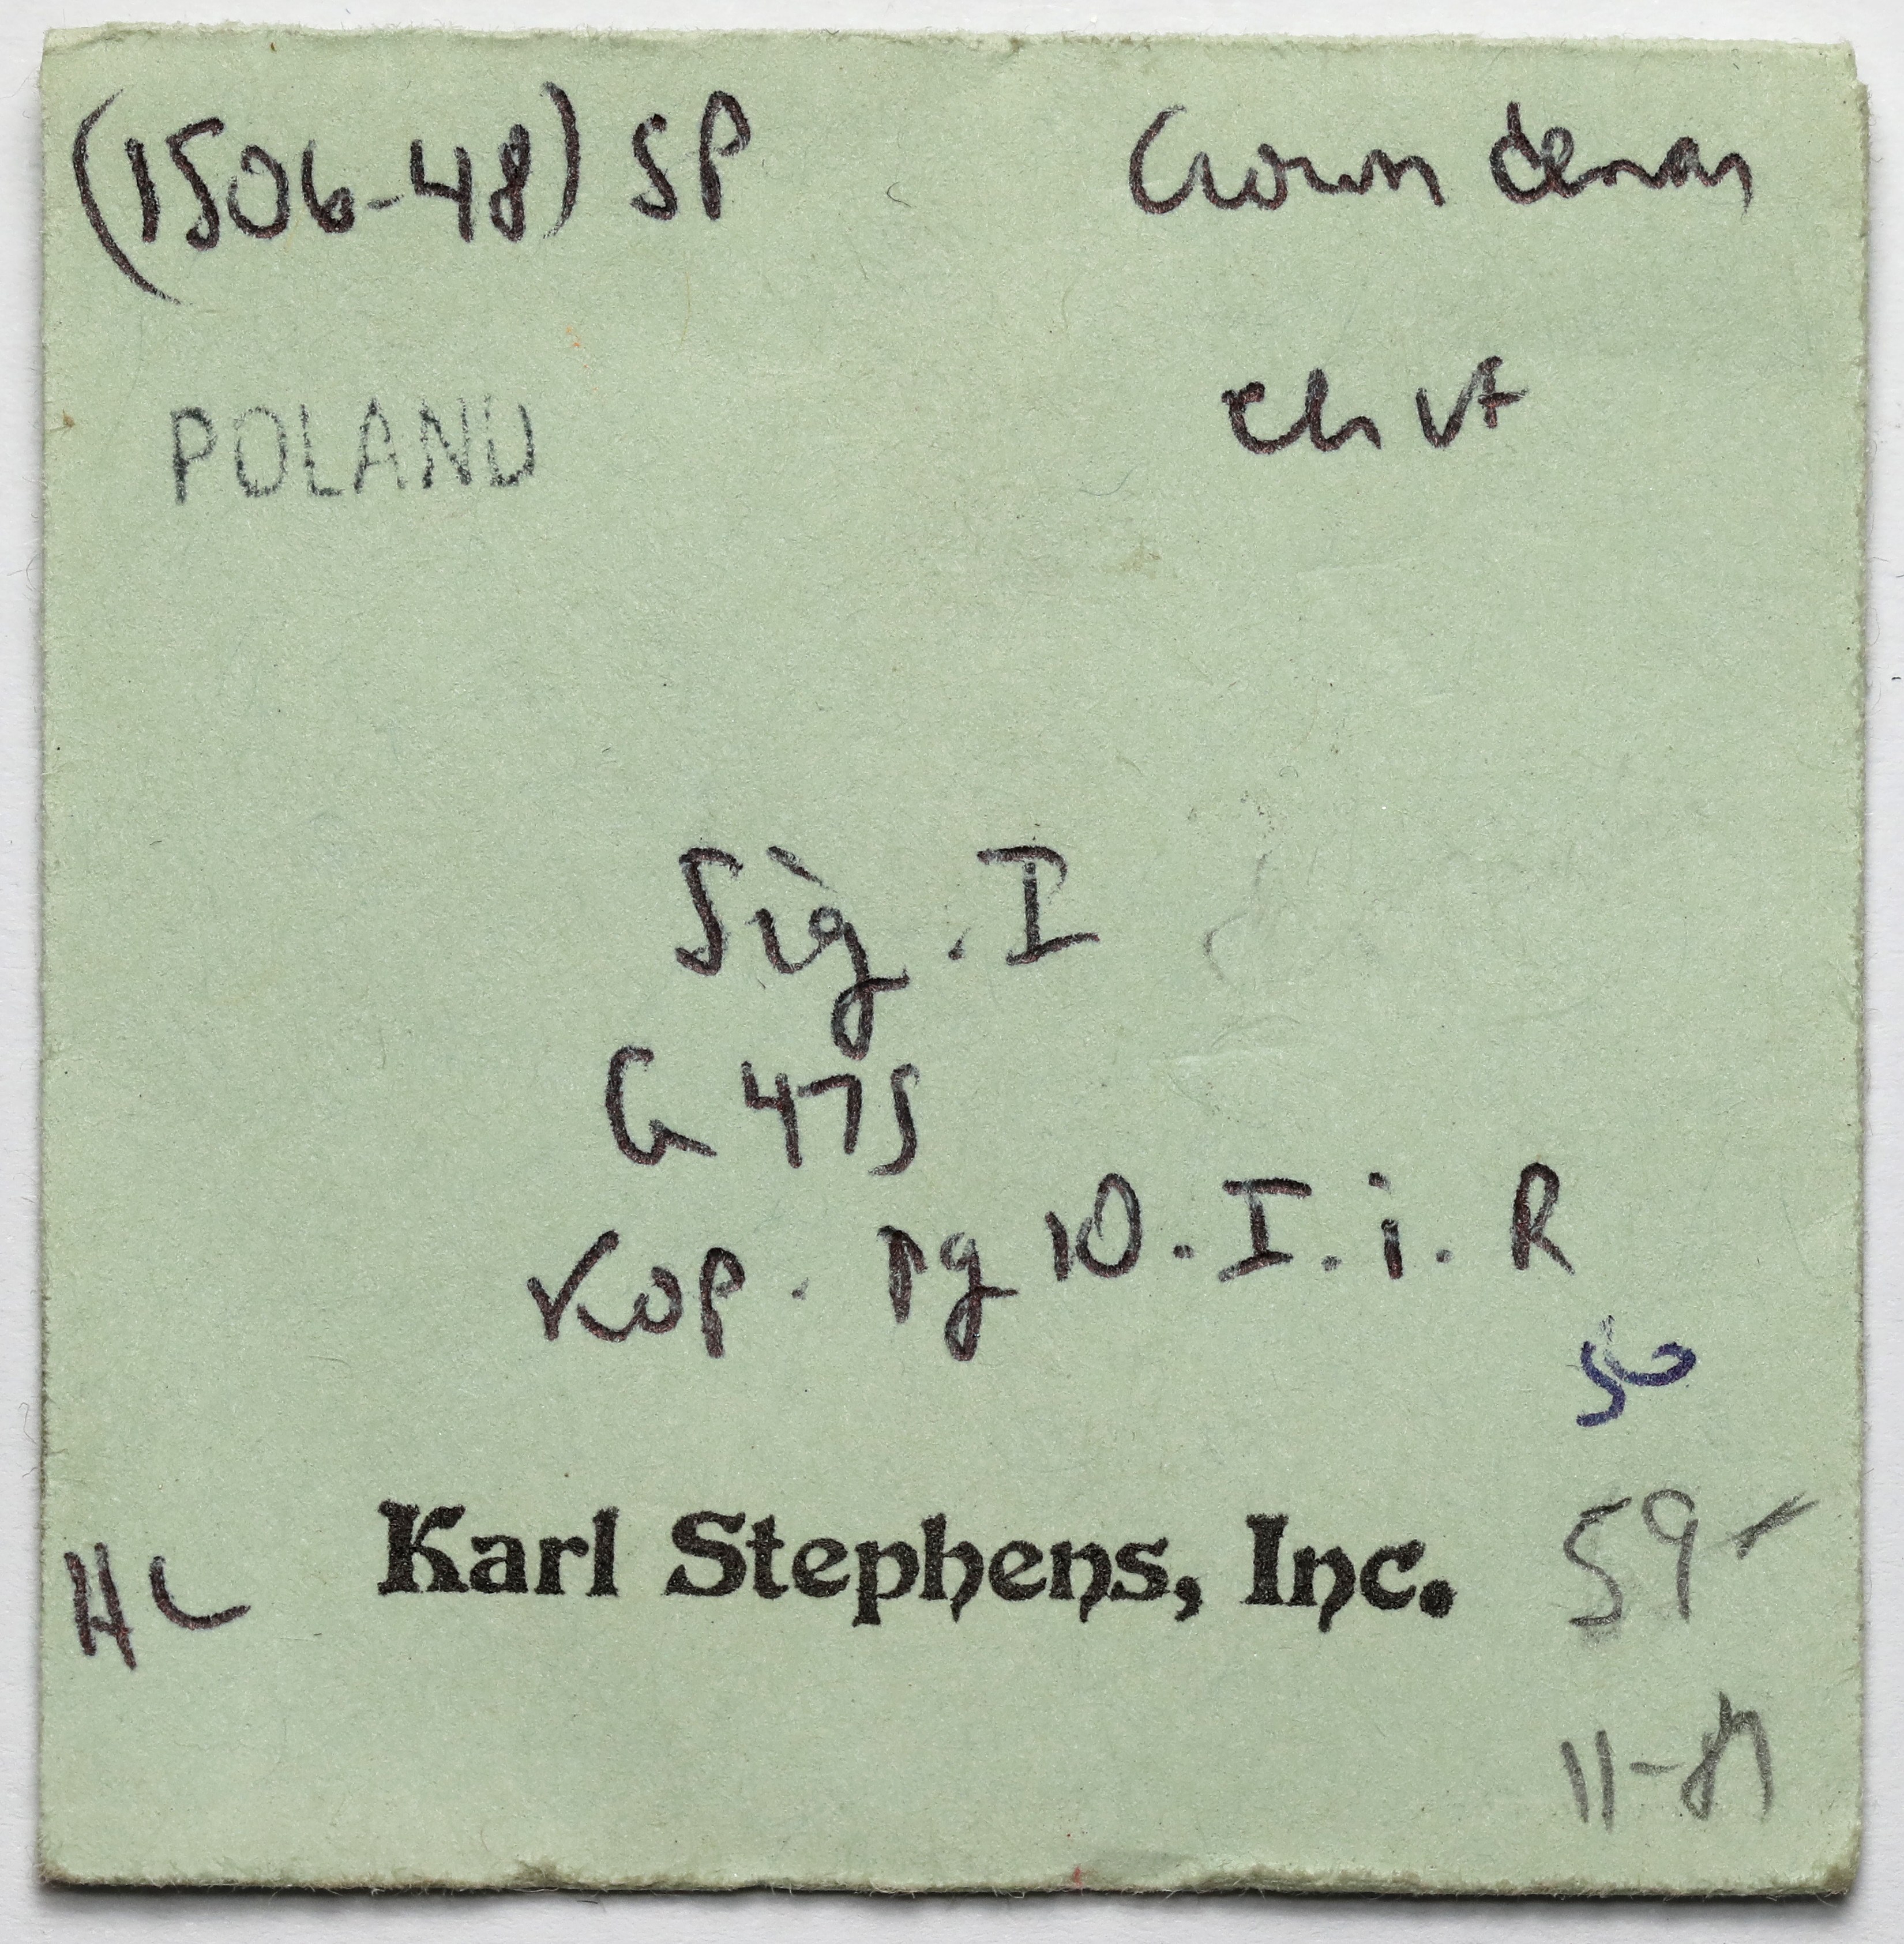 (1506-48) SP Crown denar
POLAND ch VF
Sig. I
G 475
Kop. pg 10. I. i. R
50
HC Karl Stephens, Inc. 59-